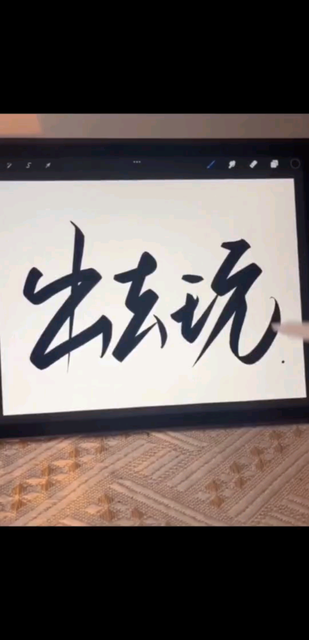 出去玩.